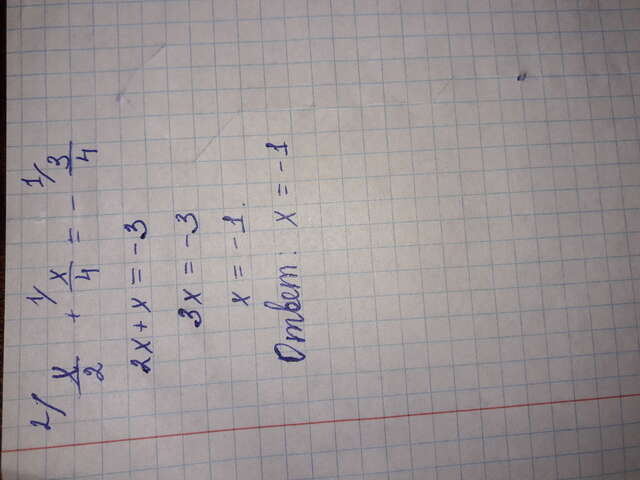 2/ x/2 + 1/ x/4 = - 1/ 3/4
2x + x = -3
3x = -3
x = -1.
Ответ: x = -1